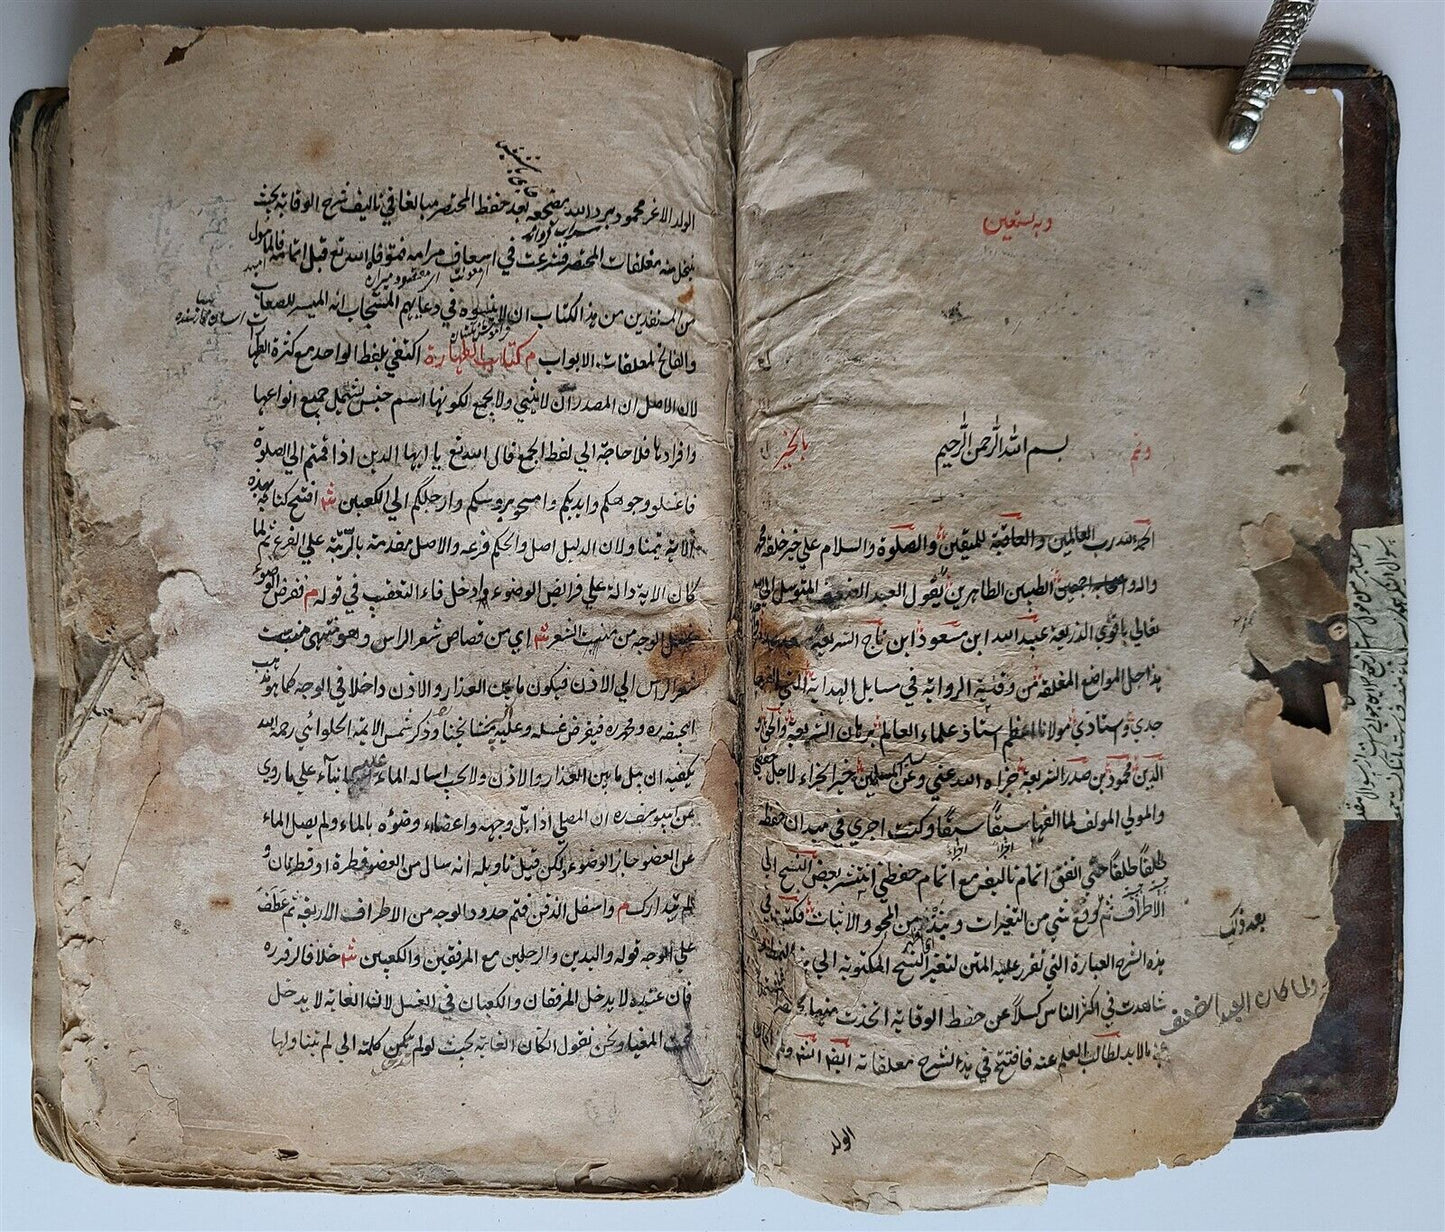 وبه نستعين
وتمم بسم الله الرحمن الرحيم بالخير
الحمد لله رب العالمين والعاقبة للمتقين والصلوة والسلام علي خير خلقه محمد
واله واصحابه اجمعين الطيبين الطاهرين يقول العبد الضعيف المتوسل الي الله
تعالي باقوي الذريعة عبيد الله ابن مسعود ابن تاج الشريعة
هذا حل المواضع المغلقة من وقاية الرواية في مسايل الهداية التي الفها
جدي واستاذي مولانا اعظم استاذ علماء العالم برهان الشريعة والحق و
الدين محمود بن صدر الشريعة جزاه الله عني وعن ساير المسلمين خير الجزاء لاجل حفظي
والمولي المولف لما الفها سبقًا سبقًا وكنت اجري في ميدان حفظه
طلقًا طلقًا حتي اتفق اتمام تاليفه مع اتمام حفظي انتشر بعض النسخ الي
الاطراف ثم وقع شي من التغيرات ونبذ من المحو والاثبات فكتبت في
هذه الشرح العبارة التي تقرر عليه المتن لتغير النسخ المكتوبة الي
شاهدت في اكثر الناس كسلًا عن حفظ الوقاية اتخذت منها مختصرا
مالابد لطالب العلم عنه فافتح في هذا الشرح مغلقاته ايضا
بعد ذلك
ولما كان العبد الضعيف
الولد
الولد الاعز محمود برد الله مضجعه بعد حفظ المختصر مبالغا في تاليف شرح الوقاية بحيث
ينحل منه مغلقات المختصر فشرعت في اسعاف مرامه فتوفاه الله تع قبل اتمامه فالمامول
من المستفدين من هذ الكتاب ان لاينسوه في دعايهم المستجاب انه الميسر للصعاب
والفاتح لمغلقات الابواب م كتاب الطهارة اكتفي بلفظ الواحد مع كثرة الطها
لان الاصل ان المصدر ان لايثني ولايجمع لكونها اسم جنس يشمل جميع انواعها
وافرادها فلاحاجة الي لفظ الجمع قال الله تع يا ايها الذين اذا قمتم الي الصلوة
فاغسلو وجوهكم وايديكم وامسحو بروسكم وارجلكم الي الكعبين ش افتتح كتابه بهذه
الاية تيمنا ولان الدليل اصل والحكم فرعه والاصل مقدمة بالرتبة علي الفرع ثم لما
كان الاية دالة علي فرائض الوضوء ادخل فاء التعقيب في قوله م ففرض الوضوء
غسل الوجه من منبت الشعر ش اي من قصاص شعر الراس وهو منتهي منبت
شعر الراس الي الاذن فيكون مابين العذار والاذن داخلا في الوجه كما هو مذهب
ابيحنيفه ره ومحمد ره فيفرض غسله وعليه مشايخنا وذكر شمس الايمة الحلوائي رحمة الله
يكفيه ان يبل مابين العذار والاذن ولايجب اسالة الماء عليه بناء علي ماروي
عن ابييوسف ره ان المصلي اذا بل وجهه واعضاء وضوه بالماء ولم يصل الماء
عن العضو جاز الوضوء لكن قيل تاويله انه سال من العضو قطرة او قطرتان و
لم يتدارك م واسفل الذقن فتم حدود الوجه من الاطراف الاربعة ثم عطف
علي الوجه قوله واليدين والرجلين مع المرفقين والكعبين ش خلافا لزفر ره
فان عنده لايدخل المرفقان والكعبان في الغسل لان الغاية لايدخل
تحت المغيا ونحن نقول ان كان الغاية بحيث لولم يكن كلمة الي لم يتناولها